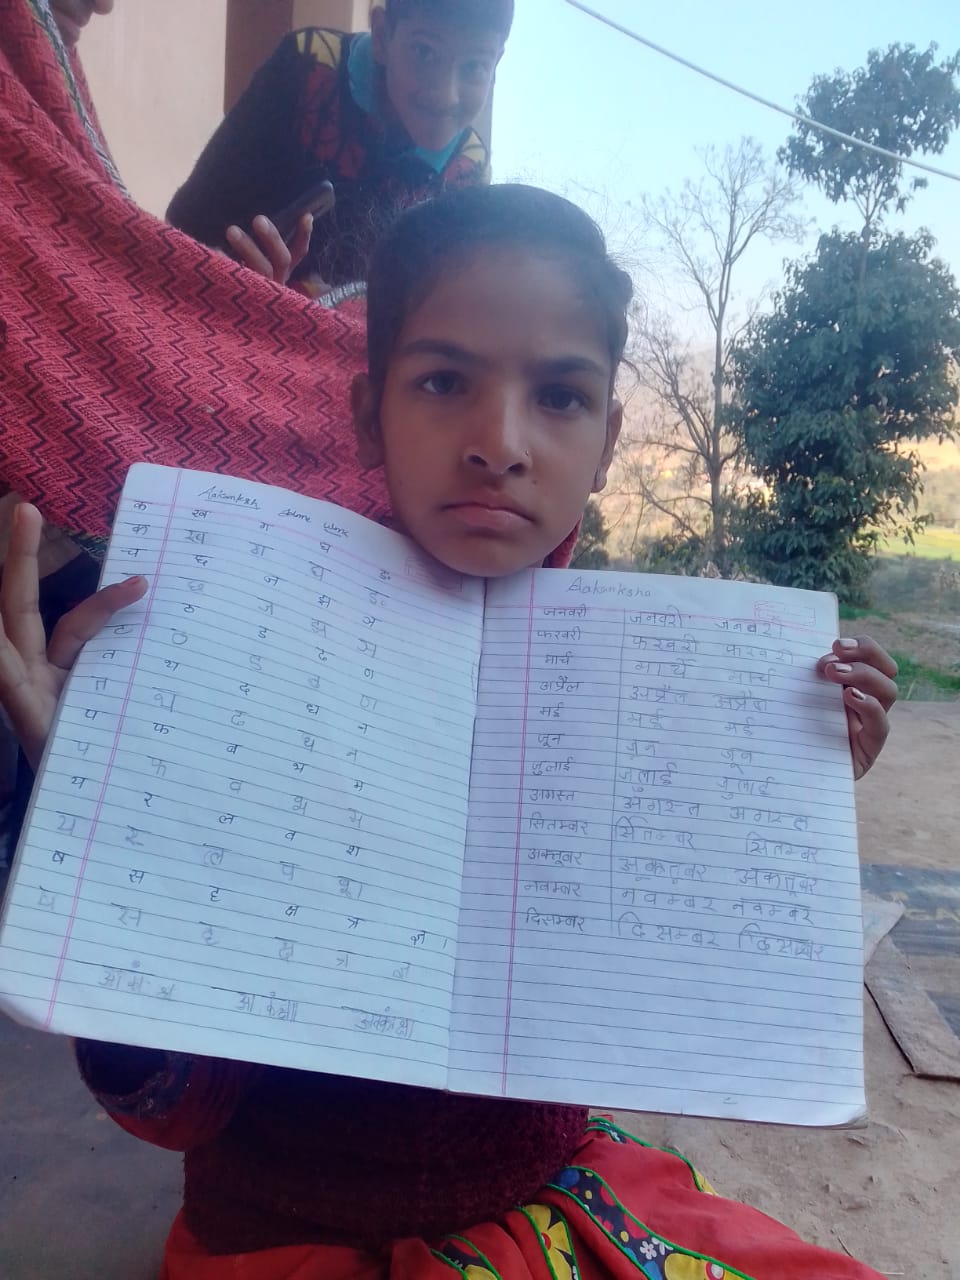 Aakanksha Home Work
क ख ग घ ङ
क ख ग घ ङ
च छ ज झ ञ
च छ ज झ ञ
ट ठ ड ढ ण
ट ठ ड ढ ण
त थ द ध न
त थ द ध न
प फ ब भ म
प फ ब भ म
य र ल व श
य र ल व श
ष स ह क्ष त्र ज्ञ ।
ष स ह क्ष त्र ज्ञ
Aakanksha
जनवरी जनवरी जनवरी
फरवरी फरवरी फरवरी
मार्च मार्च मार्च
अप्रैल अप्रैल
मई मई मई
जून जून जून
जुलाई जुलाई जुलाई
अगस्त अगस्त अगस्त
सितम्बर सितम्बर सितम्बर
अक्तूबर अकतूबर अकतूबर
नवम्बर नवम्बर नवम्बर
दिसम्बर दिसम्बर दिसम्बर